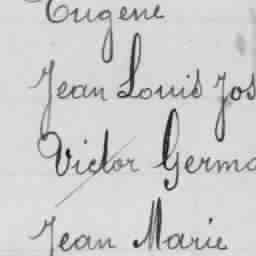 Eugène
Jean Louis Jos
Victor Germa
Jean Marie